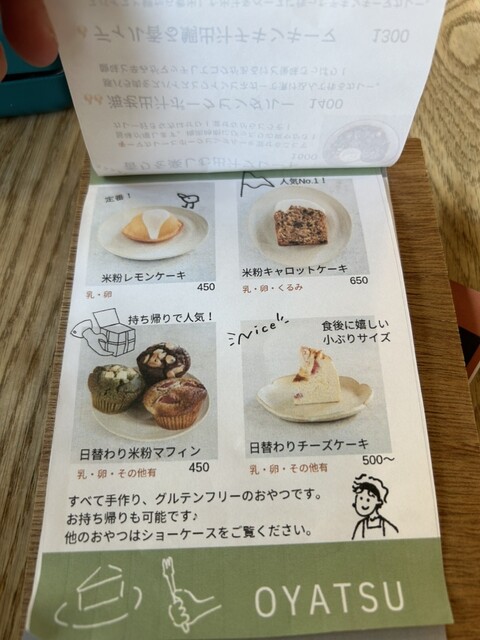 1300
1400
定番！
人気No.1！
米粉レモンケーキ
450
乳・卵
米粉キャロットケーキ
650
乳・卵・くるみ
持ち帰りで人気！
Nice
食後に嬉しい
小ぶりサイズ
日替わり米粉マフィン
450
乳・卵・その他有
日替わりチーズケーキ
500～
乳・卵・その他有
すべて手作り、グルテンフリーのおやつです。
お持ち帰りも可能です♪
他のおやつはショーケースをご覧ください。
OYATSU